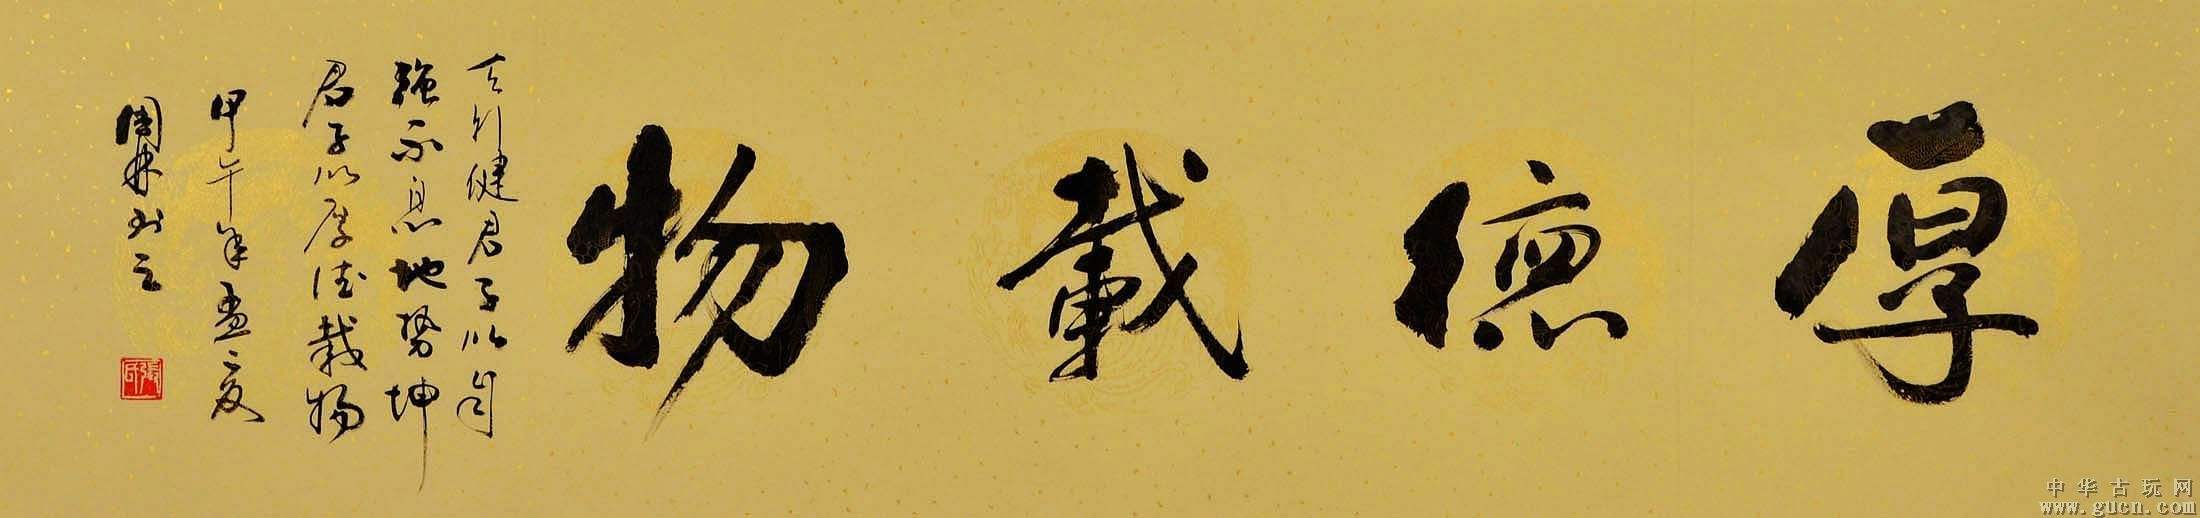 厚德載物
天行健君子以自
強不息地势坤
君子以厚德載物
甲午年孟夏
中华古玩网
www.gucn.com